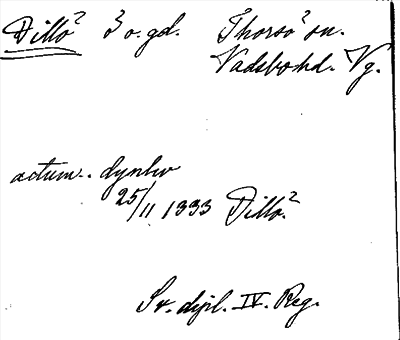 Dillö² 3 o. gd. Thorsö² sn.
Vadsbohd. Vg.
actum..
25/11 1333 Dillö.²
Sv. dipl. IV. Reg.